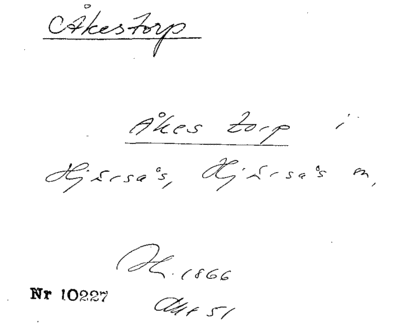 Åkestorp
Åkes torp i
Hjärsås, Hjärsås sn,
Hf. 1866
Akt 51
Nr 10227